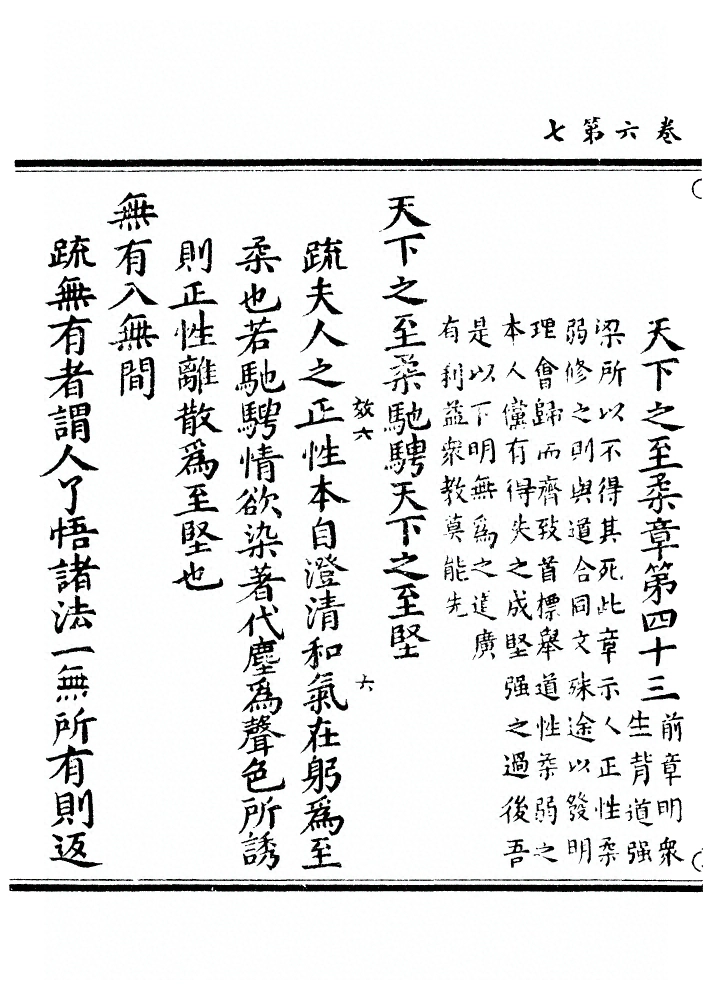 卷六第七
天下之至柔章第四十三
前章明衆
生背道强
梁所以不得其死此章示人正性柔
弱修之則與道合同文殊途以發明
理會歸而齊致首標舉道性柔弱之
本人儻有得失之成堅强之過後吾
是以下明無爲之道廣
有利益衆教莫能先
天下之至柔馳騁天下之至堅
效六
六
疏夫人之正性本自澄清和氣在躬爲至
柔也若馳騁情欲染著代塵爲聲色所誘
則正性離散爲至堅也
無有入無間
疏無有者謂人了悟諸法一無所有則返